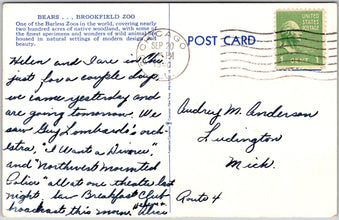 BEARS . . . BROOKFIELD ZOO
One of the Barless Zoos in the world, covering nearly
two hundred acres of native woodland, with some of
the finest specimens and wonders of wild animal
housed in natural settings of modern design
beauty.
CHICAGO
SEP 20
PM
POST CARD
UNITED STATES
POSTAGE
1 CENT 1
Helen and I are in Chi.
just for a couple days
we came yesterday and
are going tomorrow. We
saw Guy Lombardo's orch-
estra, "I Want a Divorce",
and "Northwest Mounted
Police" all at one theater last
night, saw Breakfast Club
broadcast this morn.
Alice
Audrey M. Anderson
Ludington
Mich.
Route 4